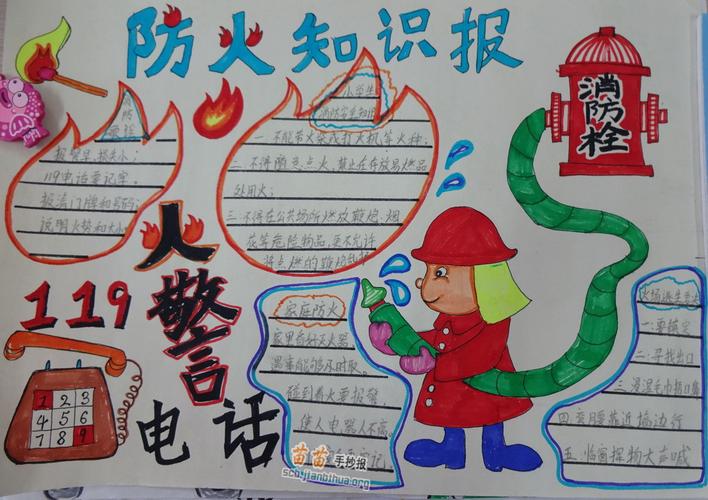 防火知识报
消防
童话
报警早,损失小;
119电话要记牢。
报清门牌和号码;
说明火势和大小
小学生
消防安全知识
一.不能带火柴或打火机等火种;
二.不得随意点火,禁止在存放易燃品
处用火;
三.不得在公共场所燃放鞭炮、烟
花等危险物品,更不允许
将点燃的鞭炮乱扔
消防栓
119
火警
电话
1 2 3
4 5 6
7 8 9
家庭防火
家里备好灭火器
遇事能够及时取。
碰到着火要报警
使人电器人不离。
记
火场逃生要
一:要镇定
二:寻找出口
三:浸湿毛巾捂口鼻
四:弯腰靠近墙边行
五:临窗挥物大声喊
苗苗手抄报
scb.jianbihua.org